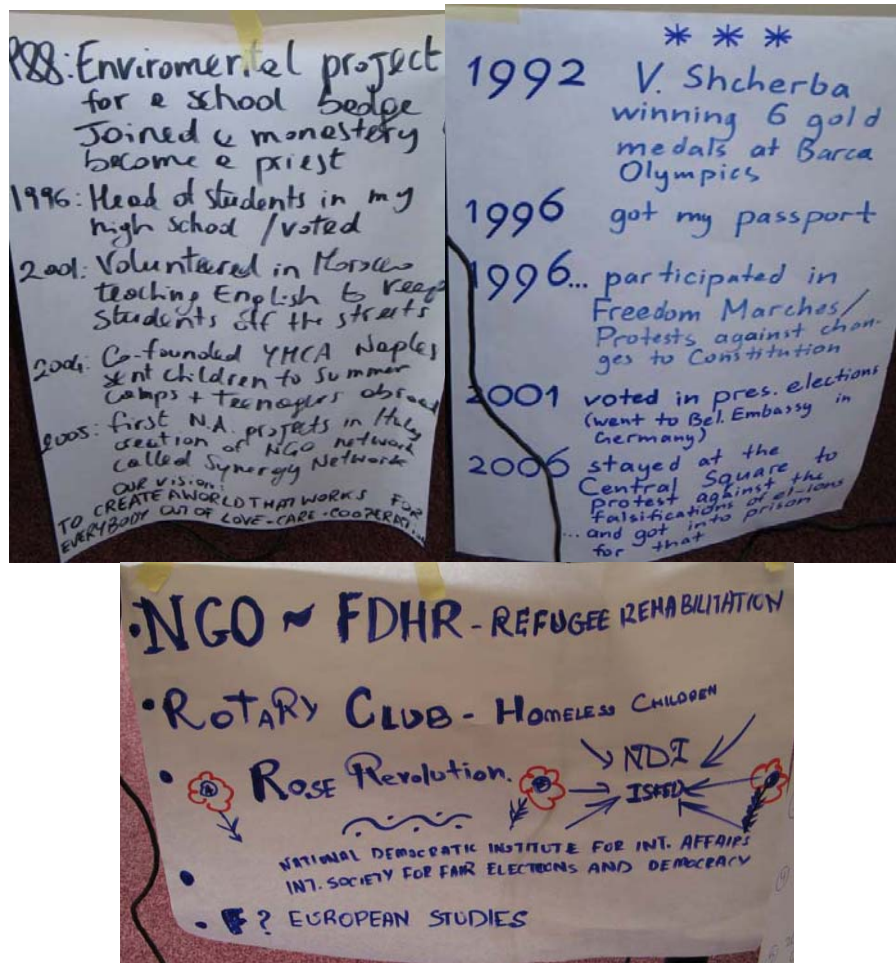 988: Enviromental project
for a school badge
Joined a monastery
become a priest
1996: Head of students in my
high school / voted
2001: Volunteered in Morocco
teaching English to keep
students off the streets
2004: Co-founded YMCA Naples
sent children to Summer
Camps + teenagers abroad
2005: first N.A. projects in Italy
creation of NGO network
called Synergy Network
our vision:
TO CREATE A WORLD THAT WORKS FOR
EVERYBODY OUT OF LOVE-CARE-COOPERATI...
* * *
1992 V. Shcherba
winning 6 gold
medals at Barca
Olympics
1996 got my passport
1996... participated in
Freedom Marches/
Protests against chan-
ges to Constitution
2001 voted in pres. elections
(went to Bel. Embassy in
Germany)
2006 stayed at the
Central Square to
protest against the
falsifications of el-ions
... and got into prison
for that
• NGO ~ FDHR - REFUGEE REHABILITATION
• ROTARY CLUB - HOMELESS CHILDREN
• ROSE Revolution.
NDI
ISFED
NATIONAL DEMOCRATIC INSTITUTE FOR INT. AFFAIRS
• INT. SOCIETY FOR FAIR ELECTIONS AND DEMOCRACY
• ? EUROPEAN STUDIES